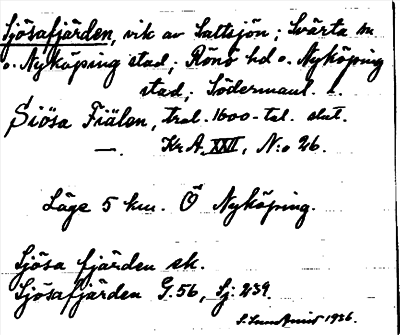 Sjösafjärden, vik av Saltsjön; Svärta sn
o. Nyköping stad; Rönö hd o. Nyköping
stad; Södermanl. l.
Siösa Fiälen, trol. 1600-tal. slut.
—. Kr A. XXII, N:o 26.
Läge 5 km. Ö Nyköping.
Sjösa fjärden ek.
Sjösafjärden G. 56, Sj: 239.
1936.